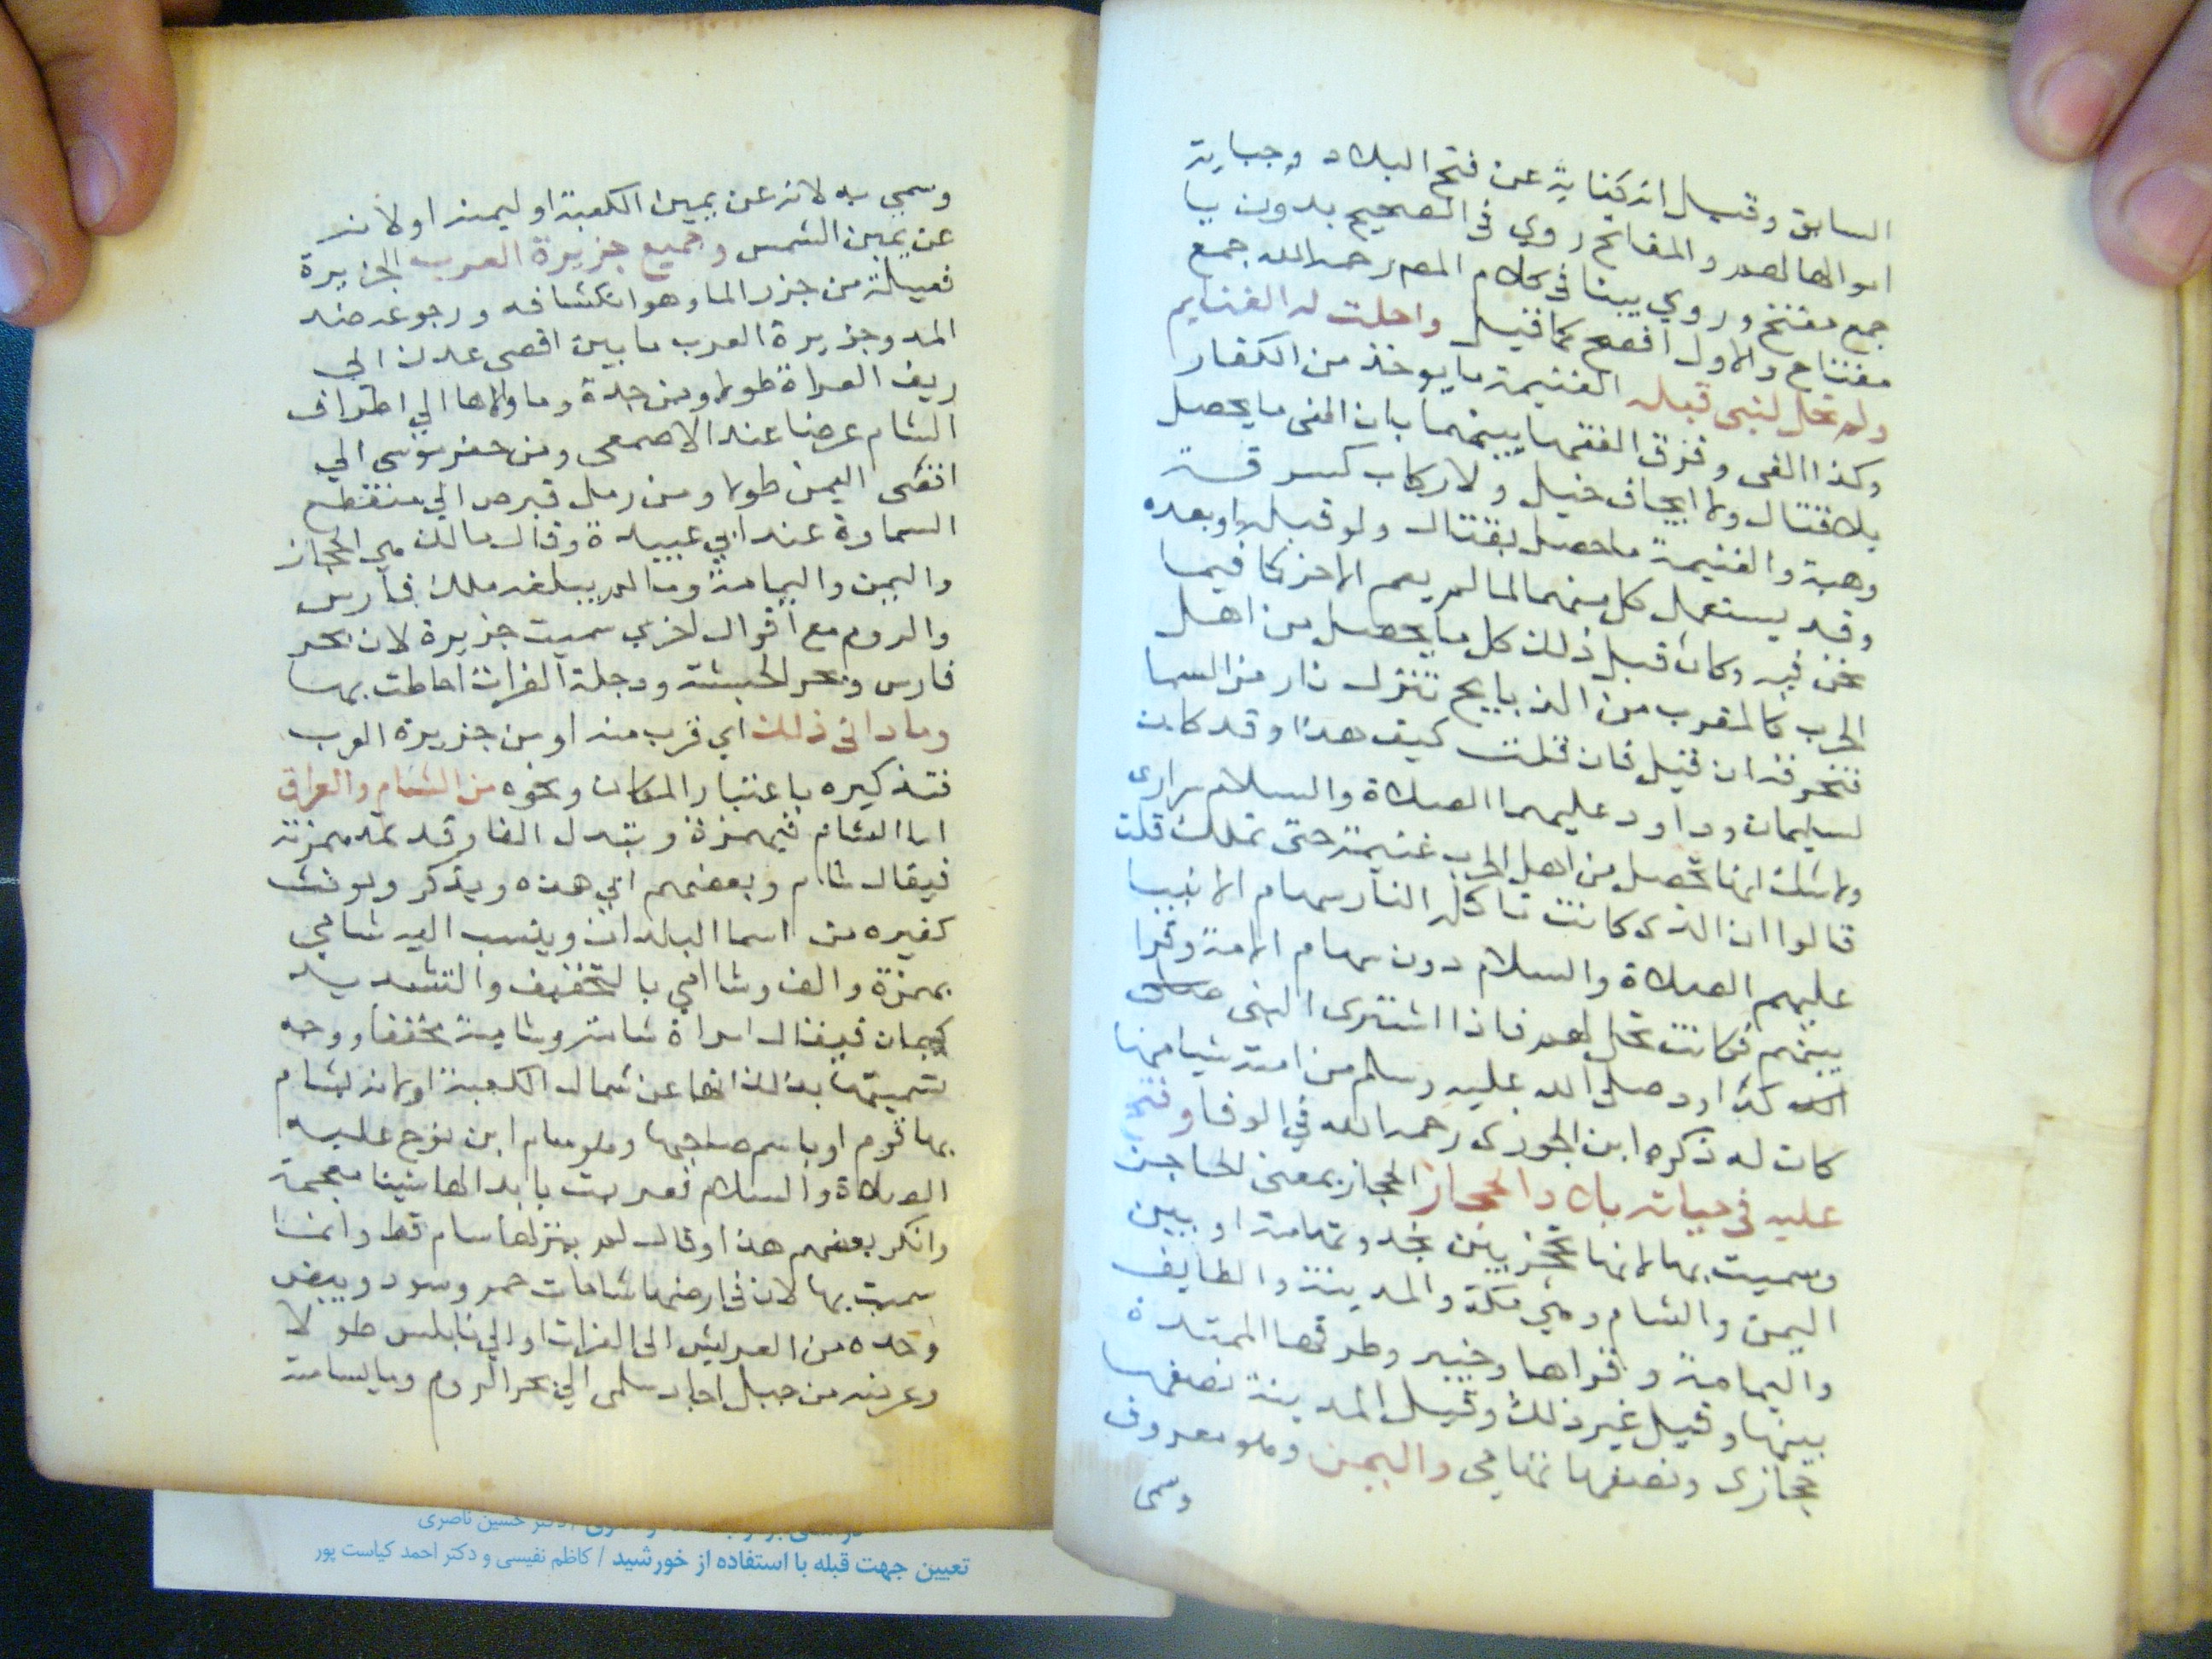 السابق وقيل انه كناية عن فتح البلاد وجباية
اموالها لهم والمفاتح روي في الصحيح بدون يا
جمع مفتح وروي بيا في كلام المص رحمه الله جمع
مفتاح والاول افصح كما قيل واحلت له الغنايم
ولم تحل لنبي قبله الغنيمة ما يوخذ من الكفار
وكذا الفي وفرق الفقها بينهما بان الفي ما يحصل
بلا قتال ولا ايجاف خيل ولا ركاب كسرقة
وهبة والغنيمة ما حصل بقتال ولو قبله او بعده
وقد يستعمل كل منهما لما لم يعم الاخر كما فيما
نحن فيه وكان قبل ذلك كل ما يحصل من اهل
الحرب كالمقرب من الذبايح تنزل نار من السما
فتحرقه ان قبل فان قلت كيف هذا وقد كان
لسليمان وداود عليهما الصلاة والسلام سراري
ولا شك انها تحصل من اهل الحرب غنيمة حتى تملك قلت
قالوا ان الذي كانت تاكله النار سهام الانبيا
عليهم الصلاة والسلام دون سهام الامة
بينهم فكانت تحل لهم فاذا اشترى النبي صلى
الله كداود صلى الله عليه وسلم من امته شيا منها
كان له ذكره ابن الجوزي رحمه الله في الوفا وفتح
عليه في حياته بلاد الحجاز الحجاز بمعنى الحاجز
وسميت بها لانها تحجز بين نجد وتهامة او بين
اليمن والشام وهي مكة والمدينة والطايف
واليمامة وقراها وخيبر وطرقها الممتدة
بينها وقيل غير ذلك وقيل المدينة نصفها
حجازي ونصفها تهامي واليمن وهو معروف
وسمى
وسمي به لانه عن يمين الكعبة او ليمنه او لانه
عن يمين الشمس وجميع جزيرة العرب الجزيرة
فعيلة من جزر الما وهو انكشافه ورجوعه ضد
المد وجزيرة العرب ما بين اقصى عدن الي
ريف العراق طولا ومن جدة وما والاها الي اطراف
الشام عرضا عند الاصمعي ومن حفر موسى الي
اقصى اليمن طولا ومن رمل قبرص الي منقطع
السماوة عند ابي عبيدة وقال مالك هي الحجاز
واليمن واليمامة وما لم يبلغه ملك فارس
والروم مع اقوال اخري سميت جزيرة لان بحر
فارس وبحر الحبشة ودجلة الفرات احاطت بها
وما دانى ذلك اي قرب منه او من جزيرة العرب
فتذكيره باعتبار المكان ونحوه من الشام والعراق
اما الشام فبهمزة وتبدل الفا وقد تمد همزته
فيقال شاام وبعضهم ابي هذه ويذكر ويونث
كغيره من اسما البلدان وينسب اليه شامي
بهمزة والف وشاامي بالتخفيف والتشديد
كيمان فيقال امراة شامية وشامية مخففا ووجه
تسميتها بذلك انها عن شمال الكعبة او لانه تشام
بها قوم او باسم صاحبها وهو سام ابن نوح عليه
الصلاة والسلام فعربت بابدالها شينا معجمة
وانكر بعضهم هذا وقال لم ينزلها سام قط وانما
سميت بها لان في ارضها شامات حمر وسود وبيض
وحده من العريش الى الفرات او الي نابلس طولا
وعرضه من جبل اجا وسلمى الي بحر الروم وما يسامته
دكتر حسين ناصری
تعیین جهت قبله با استفاده از خورشید / کاظم نفیسی و دکتر احمد کیاست پور